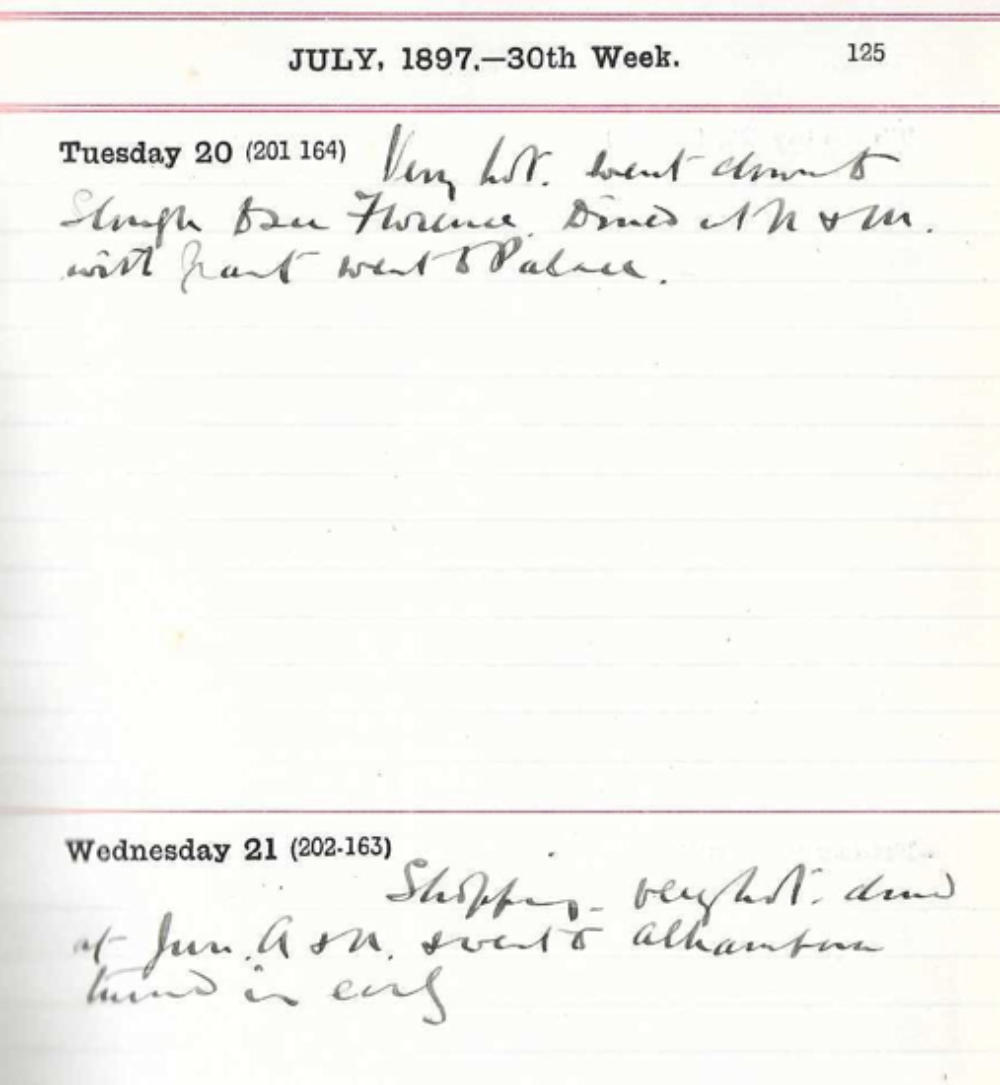 JULY, 1897.—30th Week. 125
Tuesday 20 (201 164) Very hot. went down to
Slough to see Florence. Dined at N & M.
with Grant went to Palace.
Wednesday 21 (202-163)
Shopping. very hot. dined
at Jun. A & N. & went to Alhambra
turned in early